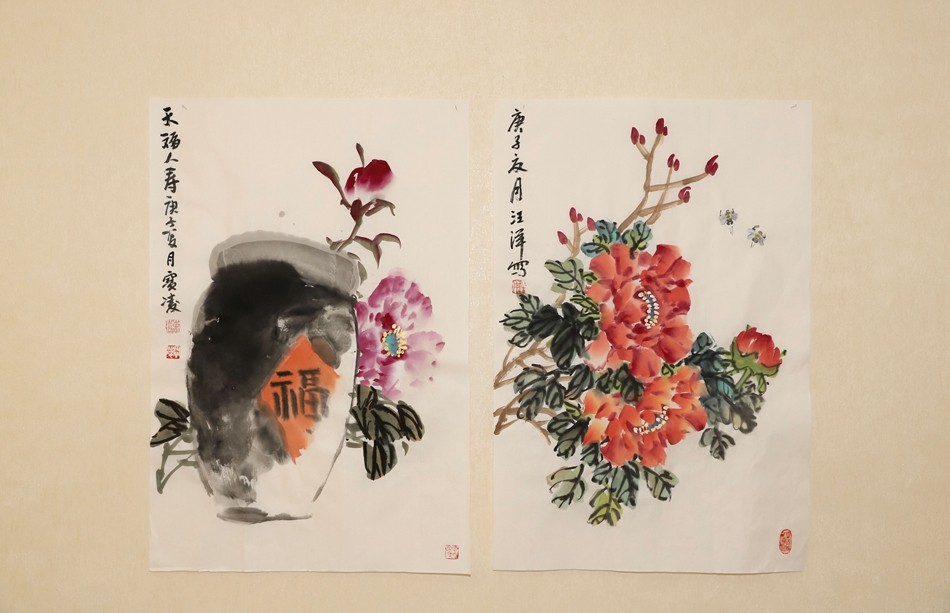 天福人寿庚子夏月宾凌
福
庚子夏月汪洋写